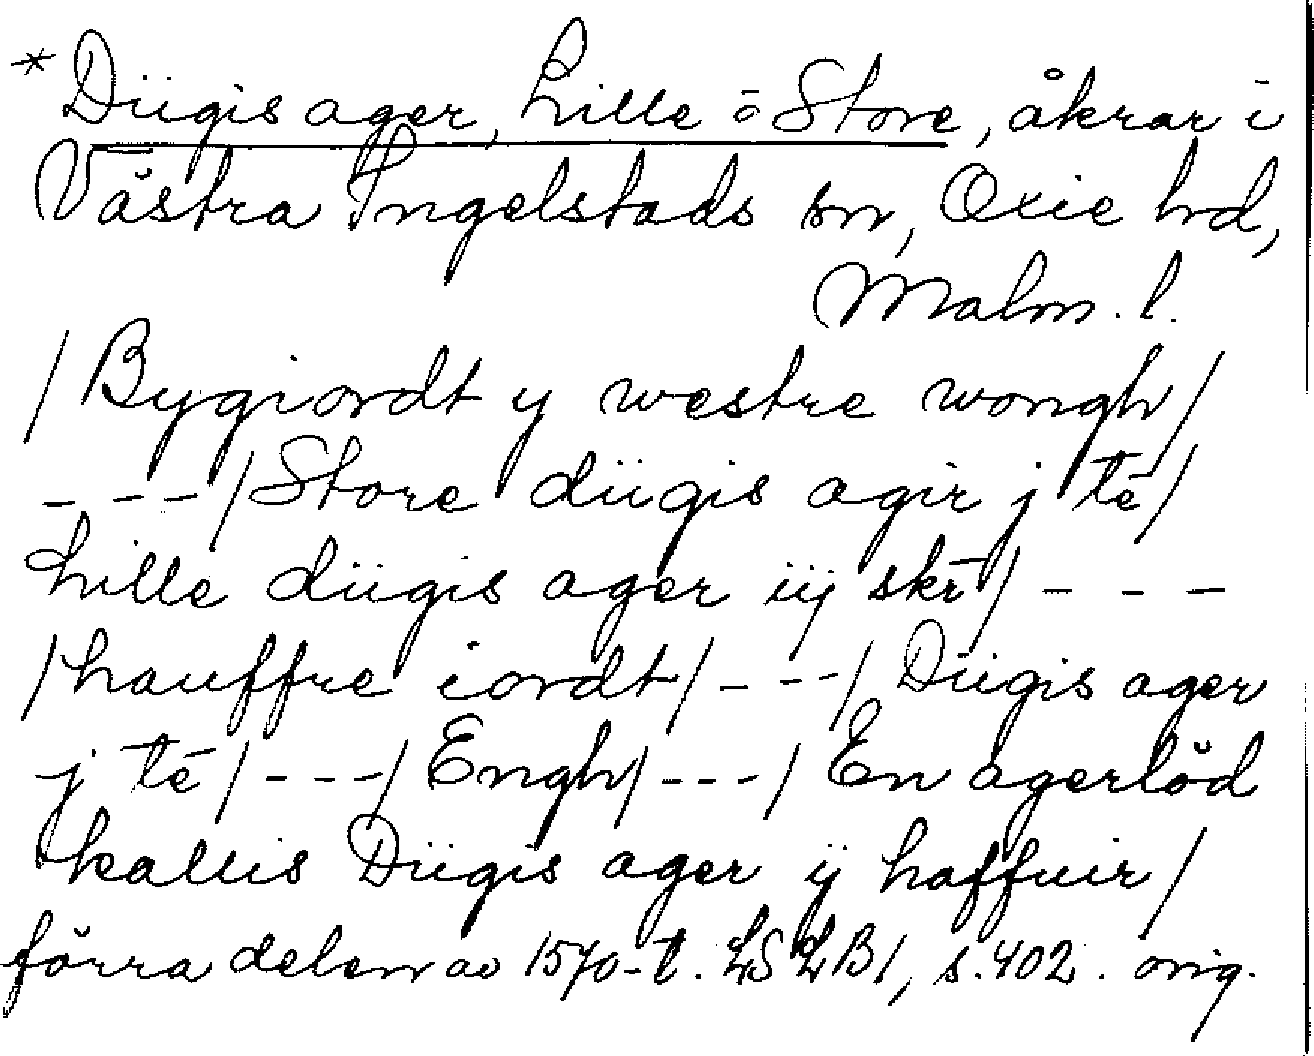 * Dügis ager, Lille o Store, åkrar i
Västra Ingelstads sn, Oxie hd,
Malm. l.
/ Bygiordt y westre wongh /
- - - / Store dügis agir j té /
Lille dügis ager iij skr / - - -
/ hauffre iordt / - - - / Dügis ager
j té / - - - / Engh / - - - / En agerlöd
kallis Dügis ager ij haffuir /
förra delen av 1570-t. LSLB1, s. 402. orig.